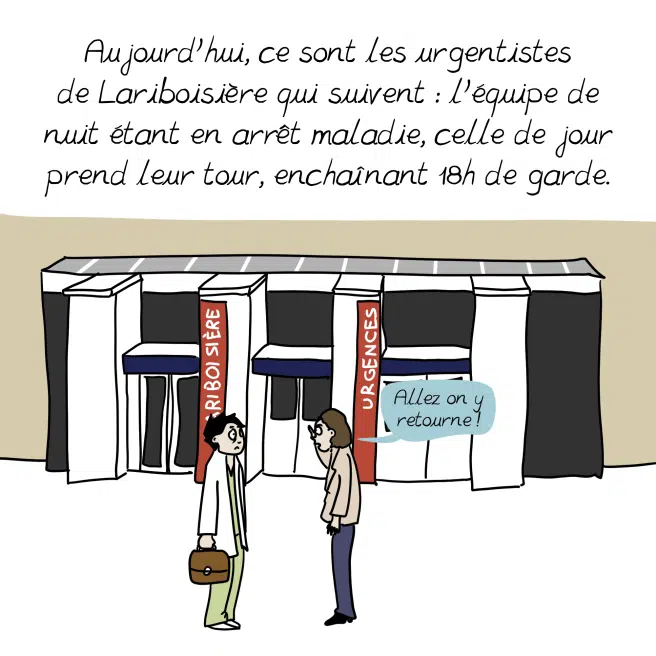 Aujourd'hui, ce sont les urgentistes
de Lariboisière qui suivent : l'équipe de
nuit étant en arrêt maladie, celle de jour
prend leur tour, enchaînant 18h de garde.
ARIBOISIÈRE
URGENCES
Allez on y
retourne !